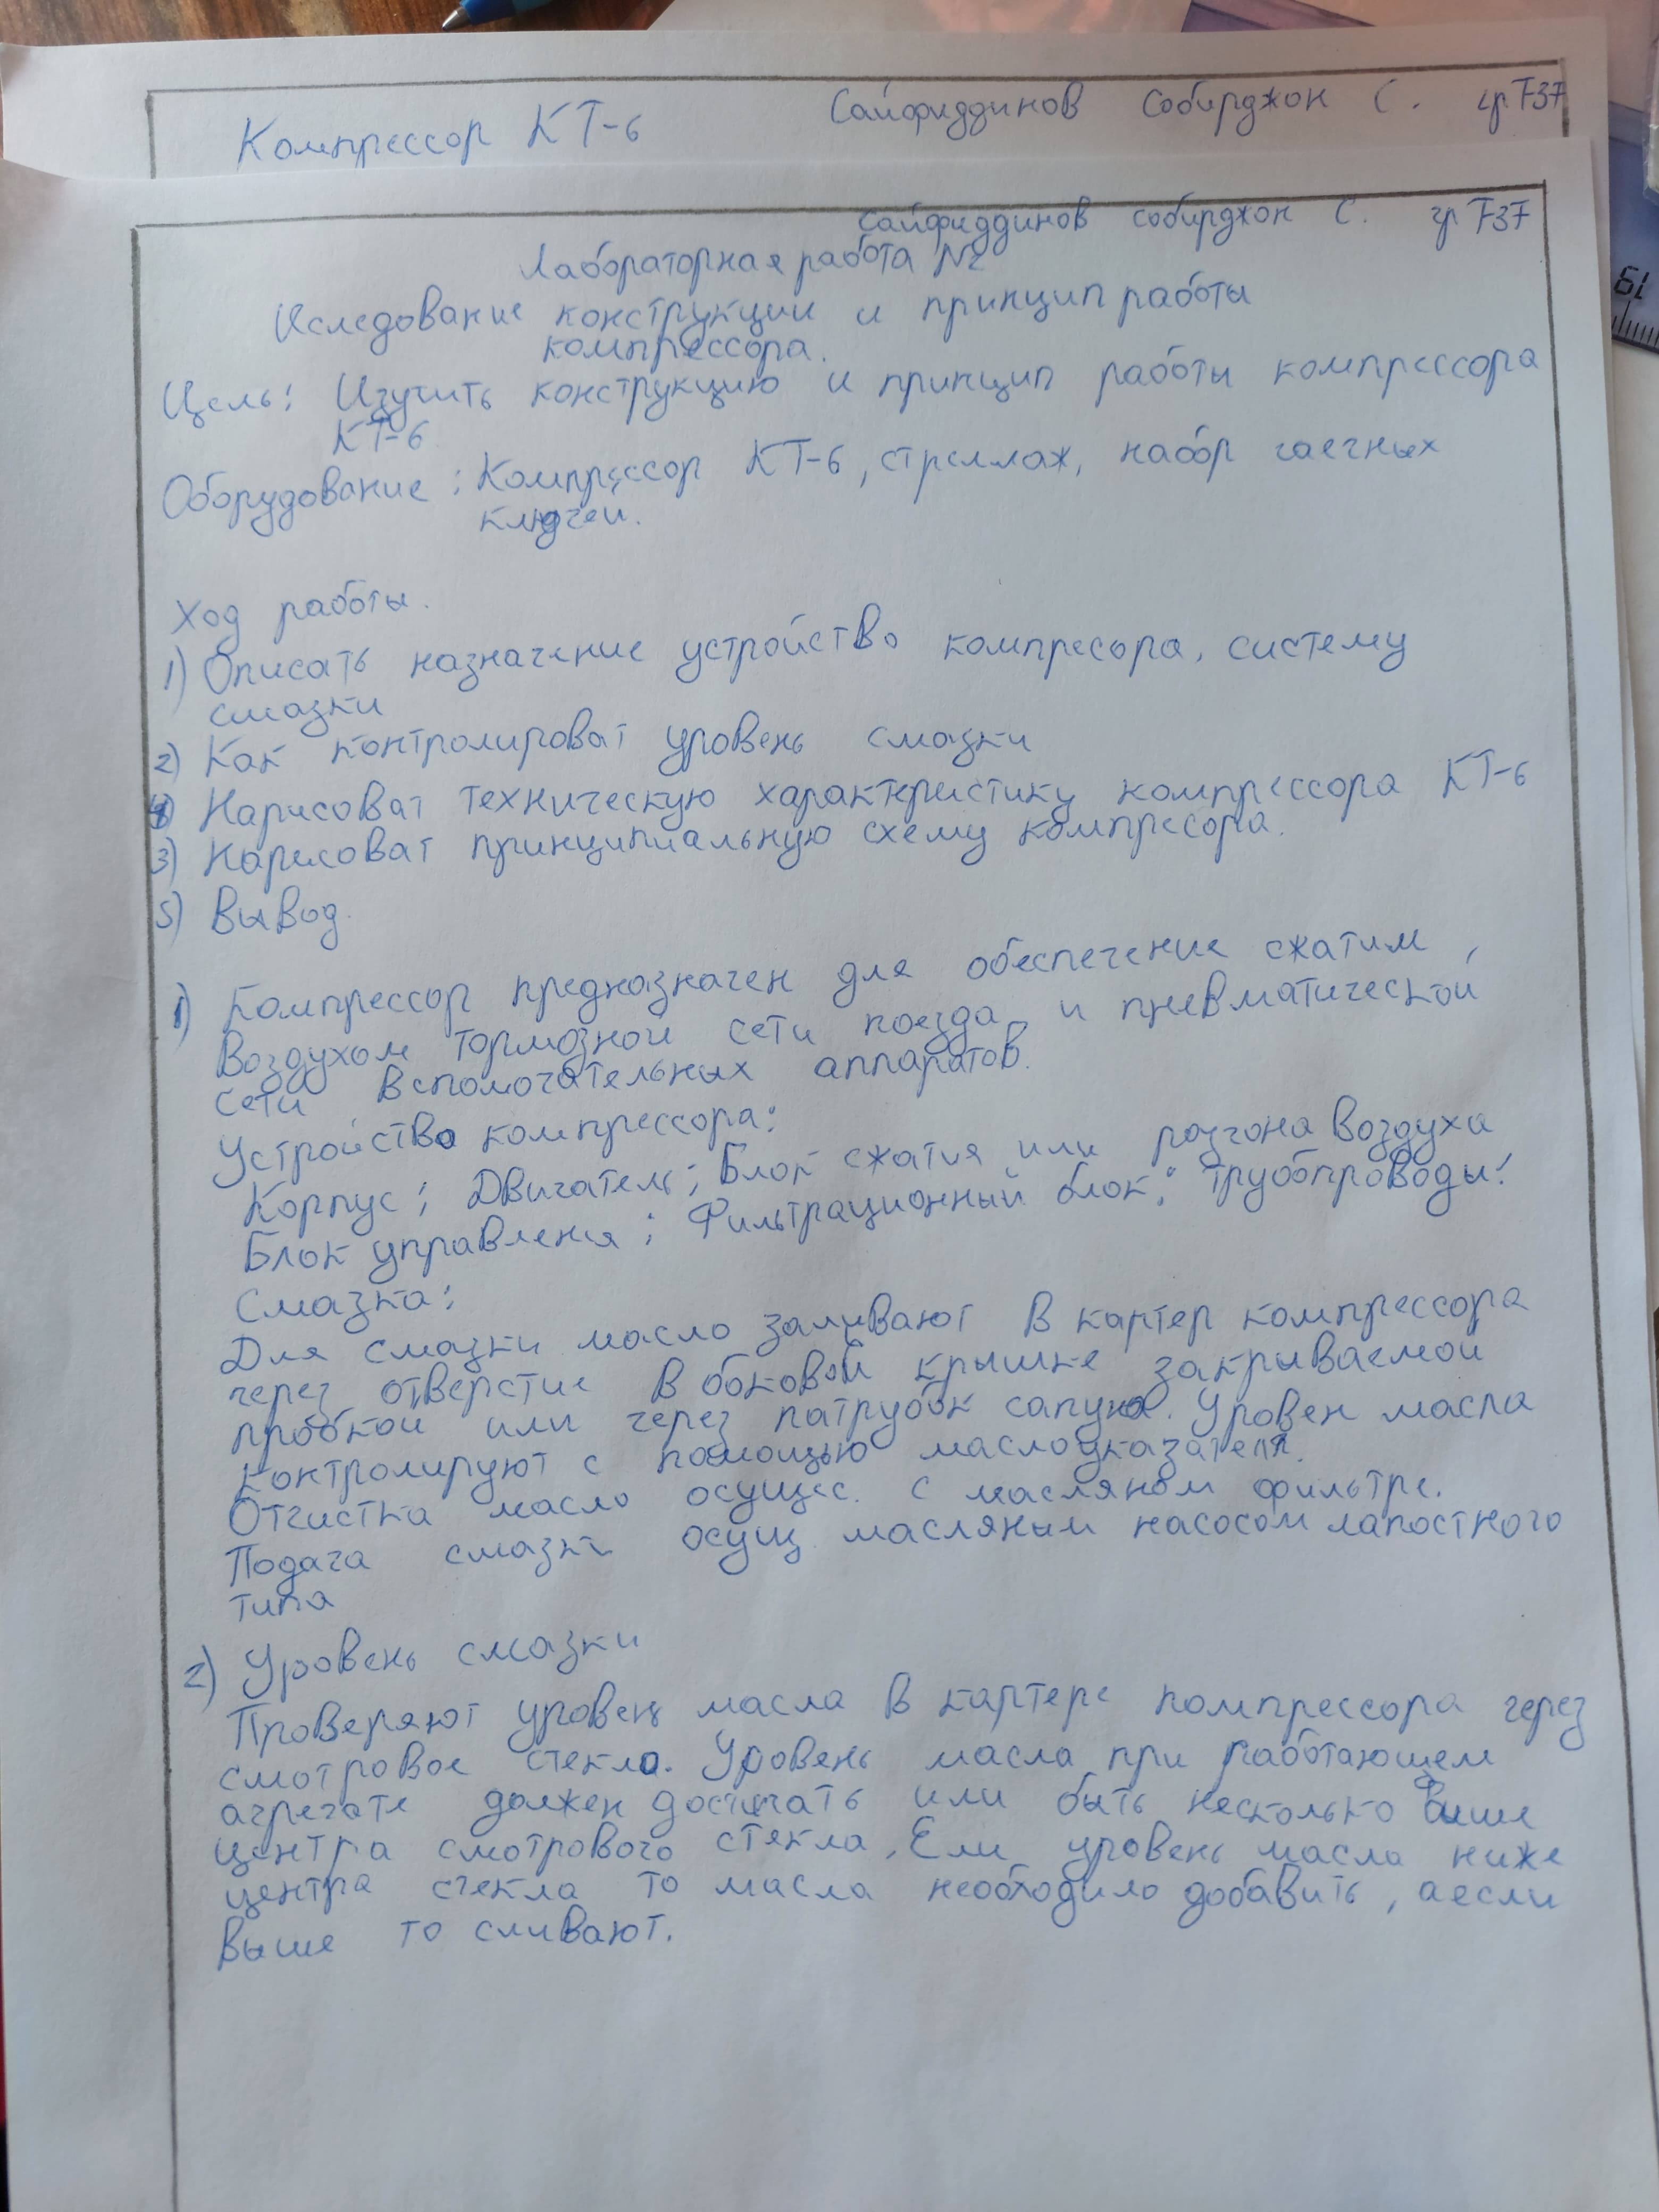 Компрессор КТ-6
Сайфиддинов Собирджон С. гр Т37
Сайфиддинов Собирджон С. гр Т37
Лабораторная работа №2
Иследование конструкции и принцип работы
компрессора.
Цель: Изучить конструкцию и принцип работы компрессора
КТ-6
Оборудование: Компрессор КТ-6, стреллаж, набор гаечных
ключеи.
Ход работы.
1) Описать назначение устройство компресора, систему
смазки
2) Как контролироват уровень смазки
4) Нарисоват техническую характкристику компрессора КТ-6
3) Нарисоват принципиальную схему компресора.
5) Вывод.
1) Компрессор предназначен для обеспечение сжатим,
воздухом тормозной сети поезда и пневматической
сети вспомогательных аппаратов.
Устройство компрессора:
Корпус; Двигатель; Блок сжатия или разгона воздуха
Блок управления; Фильтрационный блок; трубопроводы!
Смазка:
Для смазки масло заливают в картер компрессора
через отверстие в боковой крышке закрываемой
пробкой или через патрубок сапуна. Уровен масла
контролируют с помощью маслоуказателя.
Отчистка масло осущес. с масляном фильтре.
Подача смазки осущ. масляным насосом лапостного
типа
2) Уровень смазки
Проверяют уровень масла в картере компрессора через
смотровое стекло. Уровень масла при работающем
агрегате должен достигать или быть несколько выше
центра смотрового стекла. Ели уровень масла ниже
центра стекла то масла необходимо добавить, а если
выше то сливают.
19